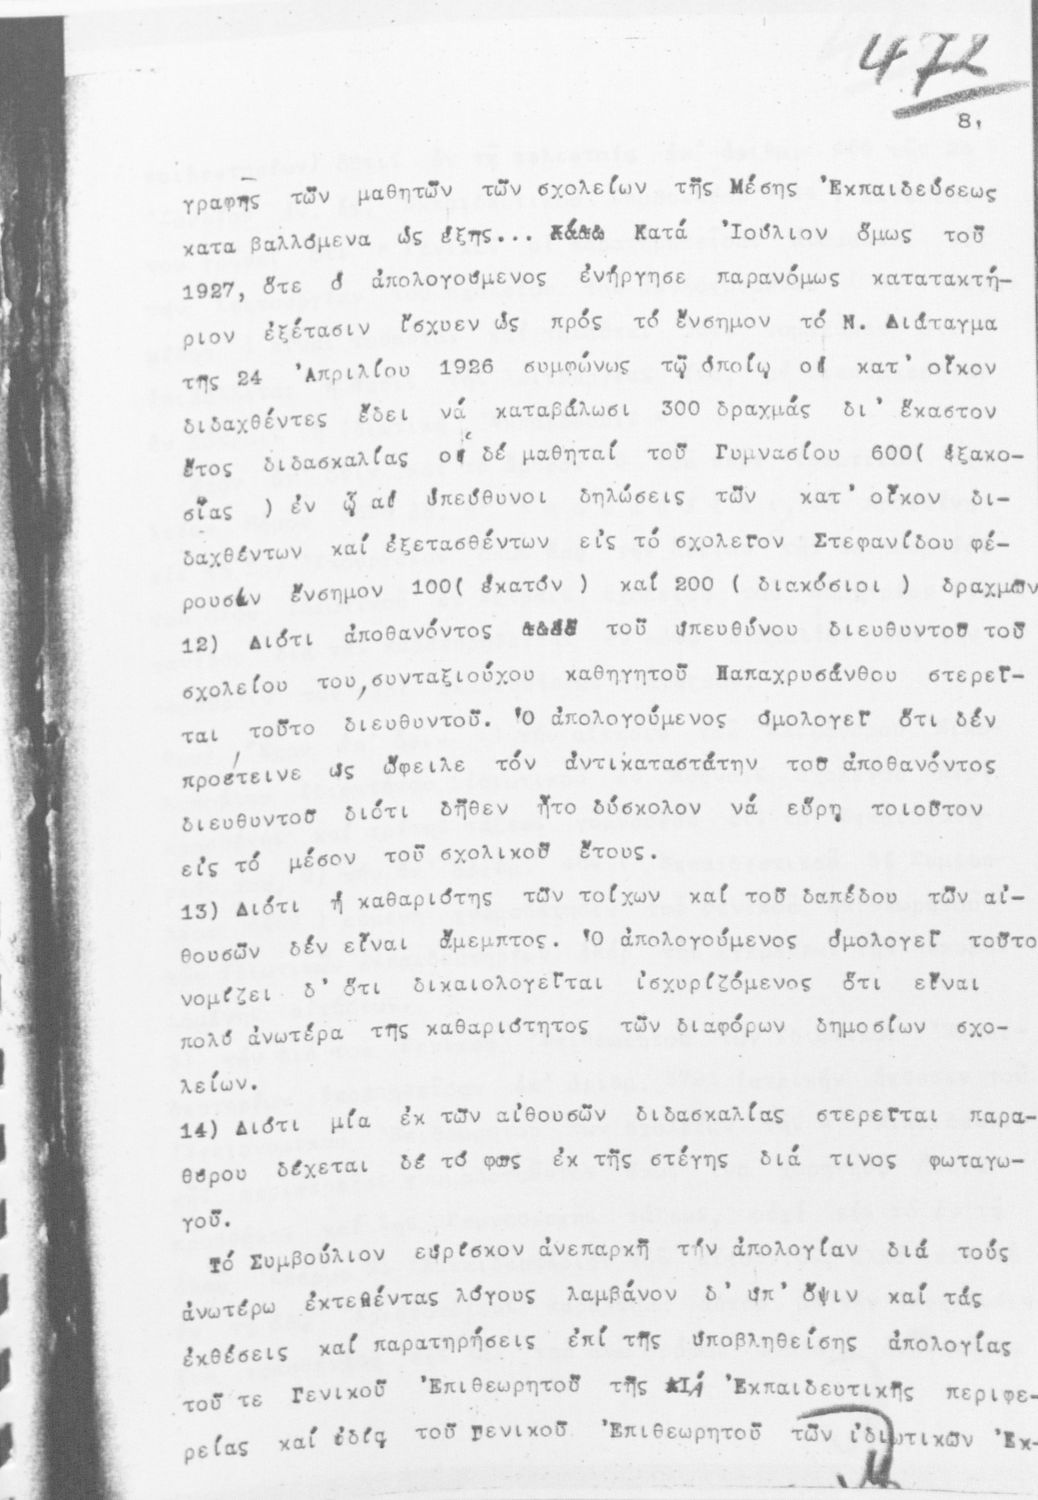 472
8.
γραφῆς τῶν μαθητῶν τῶν σχολείων τῆς Μέσης Ἐκπαιδεύσεως
κατα βαλλόμενα ὡς ἑξῆς... Κατά Ἰούλιον ὅμως τοῦ
1927, ὅτε ὁ ἀπολογούμενος ἐνήργησε παρανόμως κατατακτή-
ριον ἐξέτασιν ἴσχυεν ὡς πρός τό ἔνσημον τό Ν. Διάταγμα
τῆς 24 Ἀπριλίου 1926 συμφώνως τῷ ὁποίῳ οἱ κατ' οἶκον
διδαχθέντες ἔδει νά καταβάλωσι 300 δραχμάς δι' ἕκαστον
ἔτος διδασκαλίας οἱ δέ μαθηταί τοῦ Γυμνασίου 600( ἑξακο-
σίας ) ἐν ᾧ αἱ ὑπεύθυνοι δηλώσεις τῶν κατ' οἶκον δι-
δαχθέντων καί ἐξετασθέντων εἰς τό σχολεῖον Στεφανίδου φέ-
ρουσιν ἔνσημον 100( ἑκατόν ) καί 200 ( διακόσιοι ) δραχμῶν
12) Διότι ἀποθανόντος τοῦ ὑπευθύνου διευθυντοῦ τοῦ
σχολείου του, συνταξιούχου καθηγητοῦ Παπαχρυσάνθου στερεῖ-
ται τοῦτο διευθυντοῦ. Ὁ ἀπολογούμενος ὁμολογεῖ ὅτι δέν
προέτεινε ὡς ὤφειλε τόν ἀντικαταστάτην τοῦ ἀποθανόντος
διευθυντοῦ διότι δῆθεν ἦτο δύσκολον νά εὕρῃ τοιοῦτον
εἰς τό μέσον τοῦ σχολικοῦ ἔτους.
13) Διότι ἡ καθαριότης τῶν τοίχων καί τοῦ δαπέδου τῶν αἰ-
θουσῶν δέν εἶναι ἄμεμπτος. Ὁ ἀπολογούμενος ὁμολογεῖ τοῦτο
νομίζει δ' ὅτι δικαιολογεῖται ἰσχυρίζόμενος ὅτι εἶναι
πολύ ἀνωτέρα τῆς καθαριότητος τῶν διαφόρων δημοσίων σχο-
λείων.
14) Διότι μία ἐκ τῶν αἰθουσῶν διδασκαλίας στερεῖται παρα-
θύρου δέχεται δέ τό φῶς ἐκ τῆς στέγης διά τινος φωταγω-
γοῦ.
Τό Συμβούλιον εὑρίσκον ἀνεπαρκῆ τήν ἀπολογίαν διά τούς
ἀνωτέρω ἐκτεθέντας λόγους λαμβάνον δ' ὑπ' ὄψιν καί τάς
ἐκθέσεις καί παρατηρήσεις ἐπί τῆς ὑποβληθείσης ἀπολογίας
τοῦ τε Γενικοῦ Ἐπιθεωρητοῦ τῆς ΙΑ Ἐκπαιδευτικῆς περιφε-
ρείας καί ἰδίᾳ τοῦ Γενικοῦ Ἐπιθεωρητοῦ τῶν ἰδιωτικῶν Ἐκ-